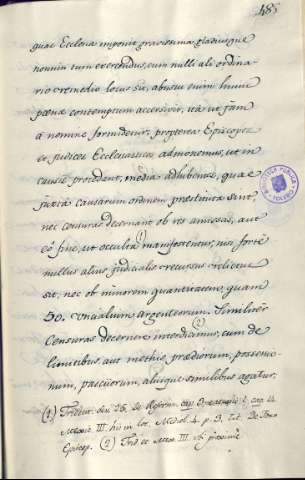 485
quae Ecclesia imponit gravissima gladius que
nonnisi tum exerendus, cum nulli alii ordina-
rio remedio locus sit, abusus enim hunc
poenae contemptum accersivit, ita ut jam
a nemine formidetur, propterea Episcopos
et Judices Ecclesiasticos admonemus, ut in
causis procedant, media adhibentes, quae
juxtà causarum ordinem praestituta sint,
nec censuras decernant ob res amissas, aut
eo fine, ut occulta manifestentur, nisi forte (1)
nullus alius judicialis recursus relictus
sit, nec ob minorem quantitatem, quam
50. unciarum argentearum. Similiter
Censuras decernere interdicimus, cum de (2)
limitibus, aut methis praediorum, possessio-
num, pascuorum, aliisque similibus agatur,
(1) Trident. Ses. 25. de Reform. cap.
Mexic. III. hic in loc.
Episcop. (2) Trid. et Mex. III. ubi proxime